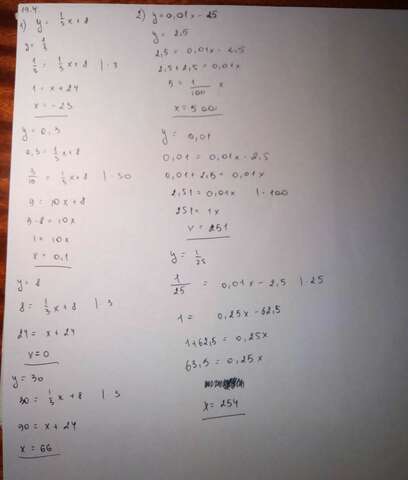 19.4.
1) y = 1/3 x + 8
y = 1/3
1/3 = 1/3 x + 8 | · 3
1 = x + 24
x = -23
y = 0,3
0,3 = 1/3 x + 8
3/10 = 1/3 x + 8 | · 30
9 = 10x + 8
9 - 8 = 10x
1 = 10x
x = 0,1
y = 8
8 = 1/3 x + 8 | · 3
24 = x + 24
x = 0
y = 30
30 = 1/3 x + 8 | · 3
90 = x + 24
x = 66
2) y = 0,01x - 25
y = 2,5
2,5 = 0,01x - 2,5
2,5 + 2,5 = 0,01x
5 = 1/100 x
x = 500
y = 0,01
0,01 = 0,01x - 2,5
0,01 + 2,5 = 0,01x
2,51 = 0,01x | · 100
251 = 1x
x = 251
y = 1/25
1/25 = 0,01x - 2,5 | · 25
1 = 0,25x - 62,5
1 + 62,5 = 0,25x
63,5 = 0,25x
x = 254